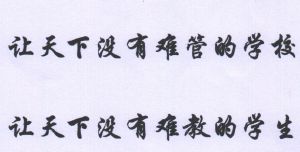 让天下没有难管的学校
让天下没有难教的学生